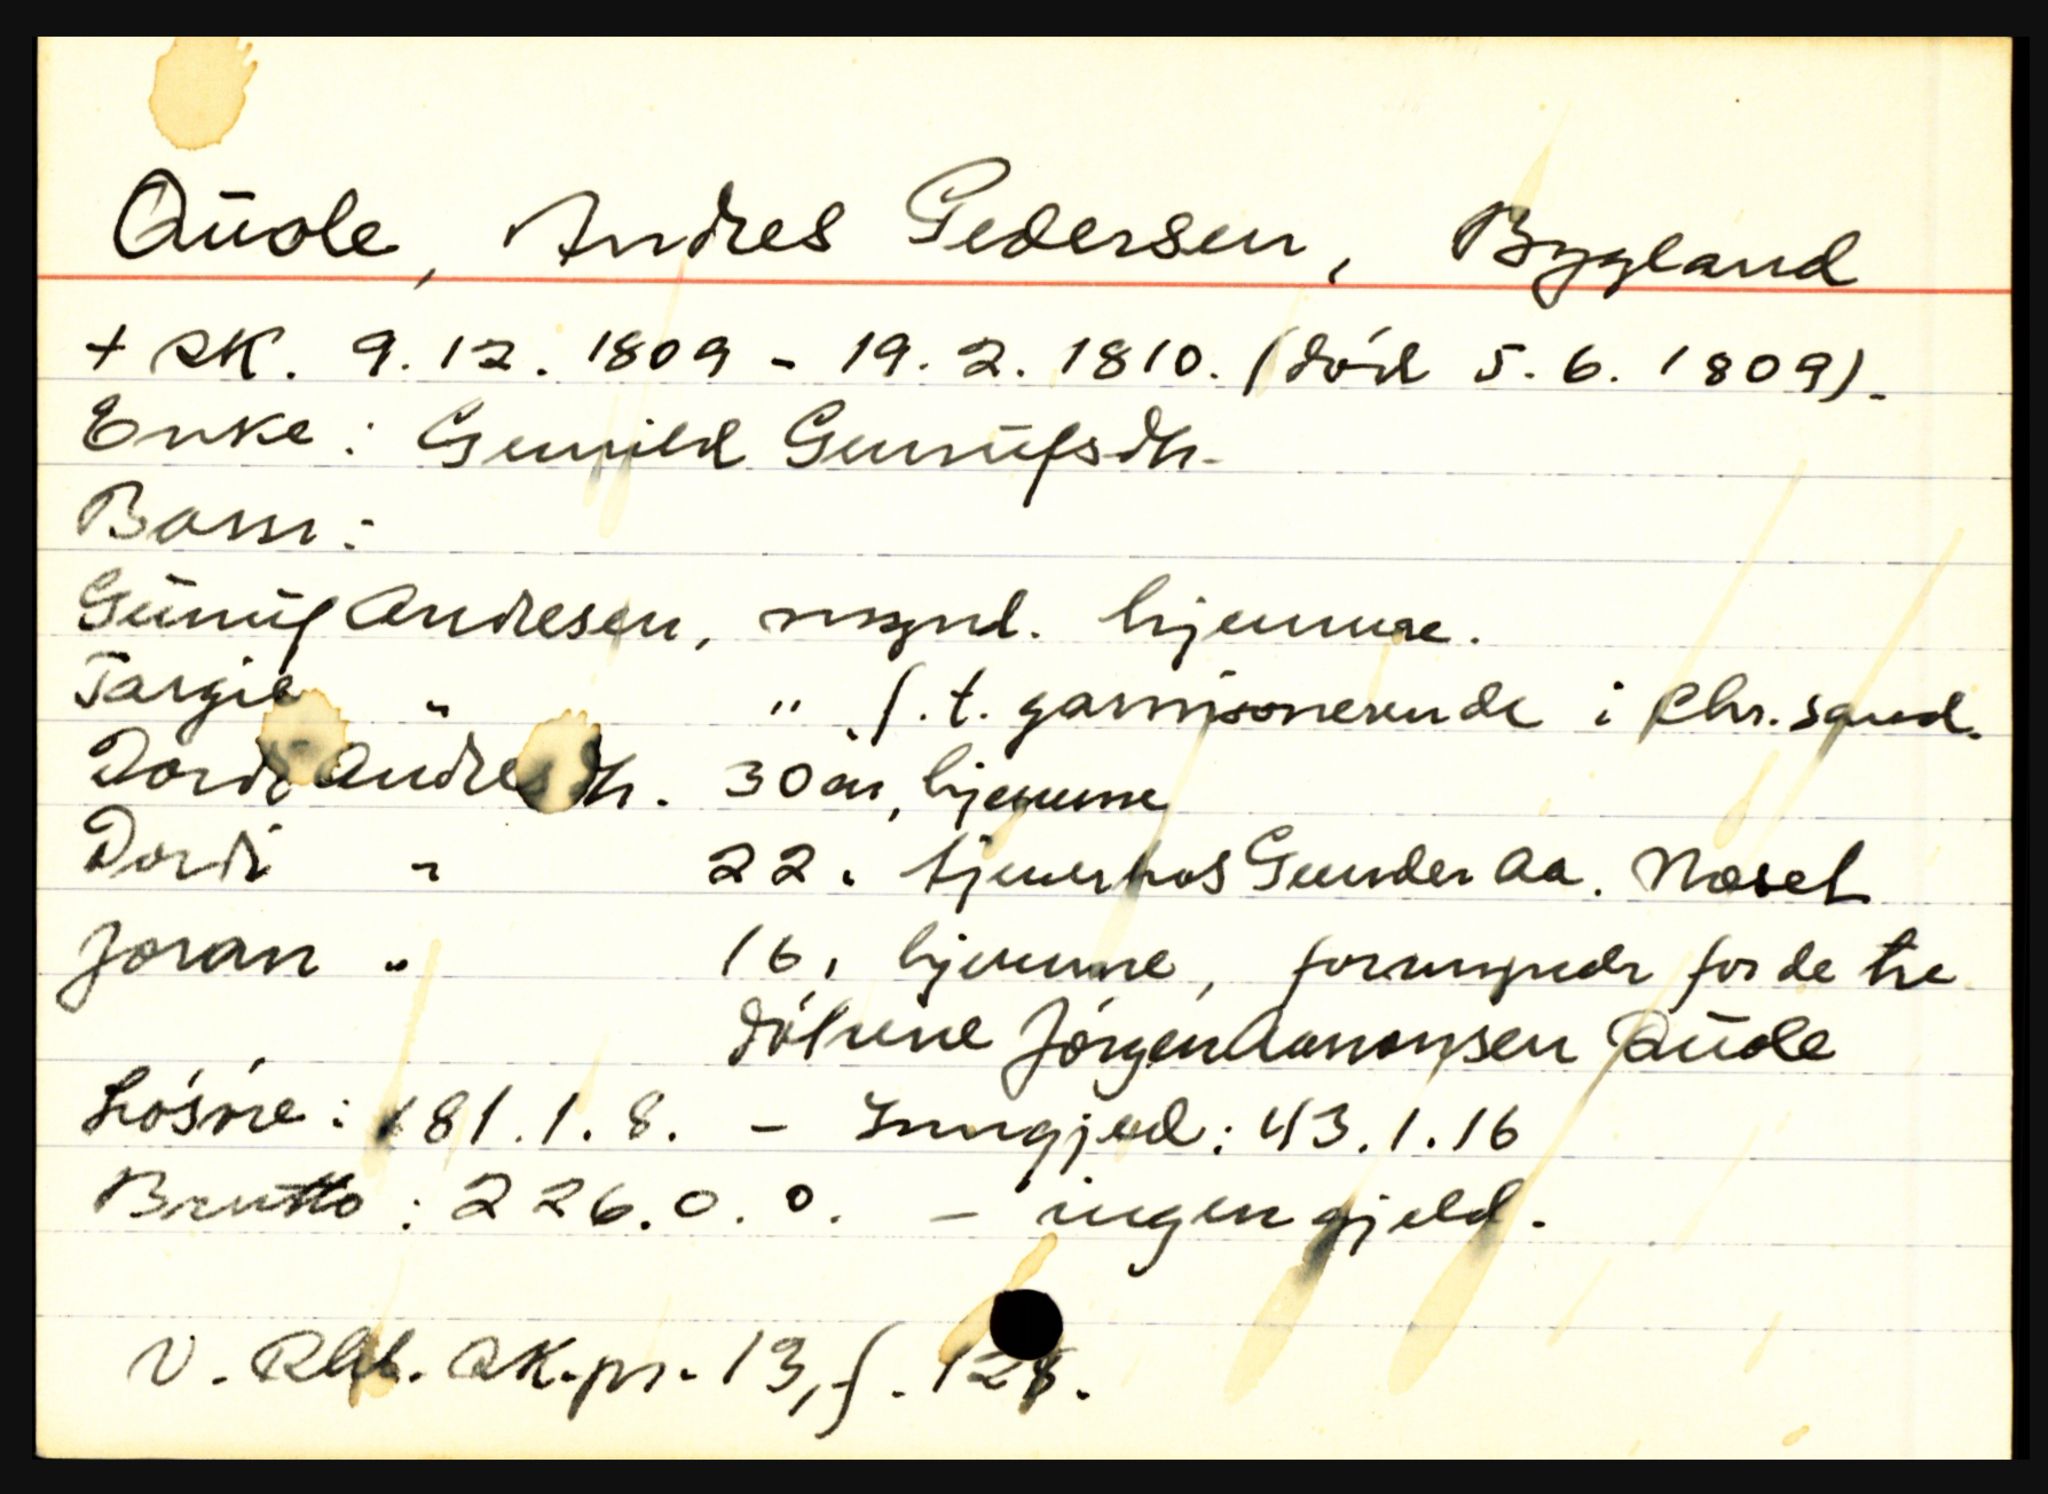 Quole, Andres Pedersen, Bygland
+ SK. 9.12.1809 - 19.2.1810. (död 5.6.1809).
Enke: Gunild Gunufsdtr.
Barn:
Gunuf Andresen, mynd. hjemme.
Targie " " f.t. garnisonerende i Chr.sand.
Dordi Andresdtr. 30 år, hjemme
Dordi " 22 " tjener hos Gunder Aa. Næset
Joran " 16, hjemme, formynder for de tre
dötrene Jörgen Aanonsen Quole
Lösöre: 181.1.8. - Inngjeld: 43.1.16
Brutto: 226.0.0. - ingen gjeld.
V. Rbl. SK.pr. 13, f. 128.